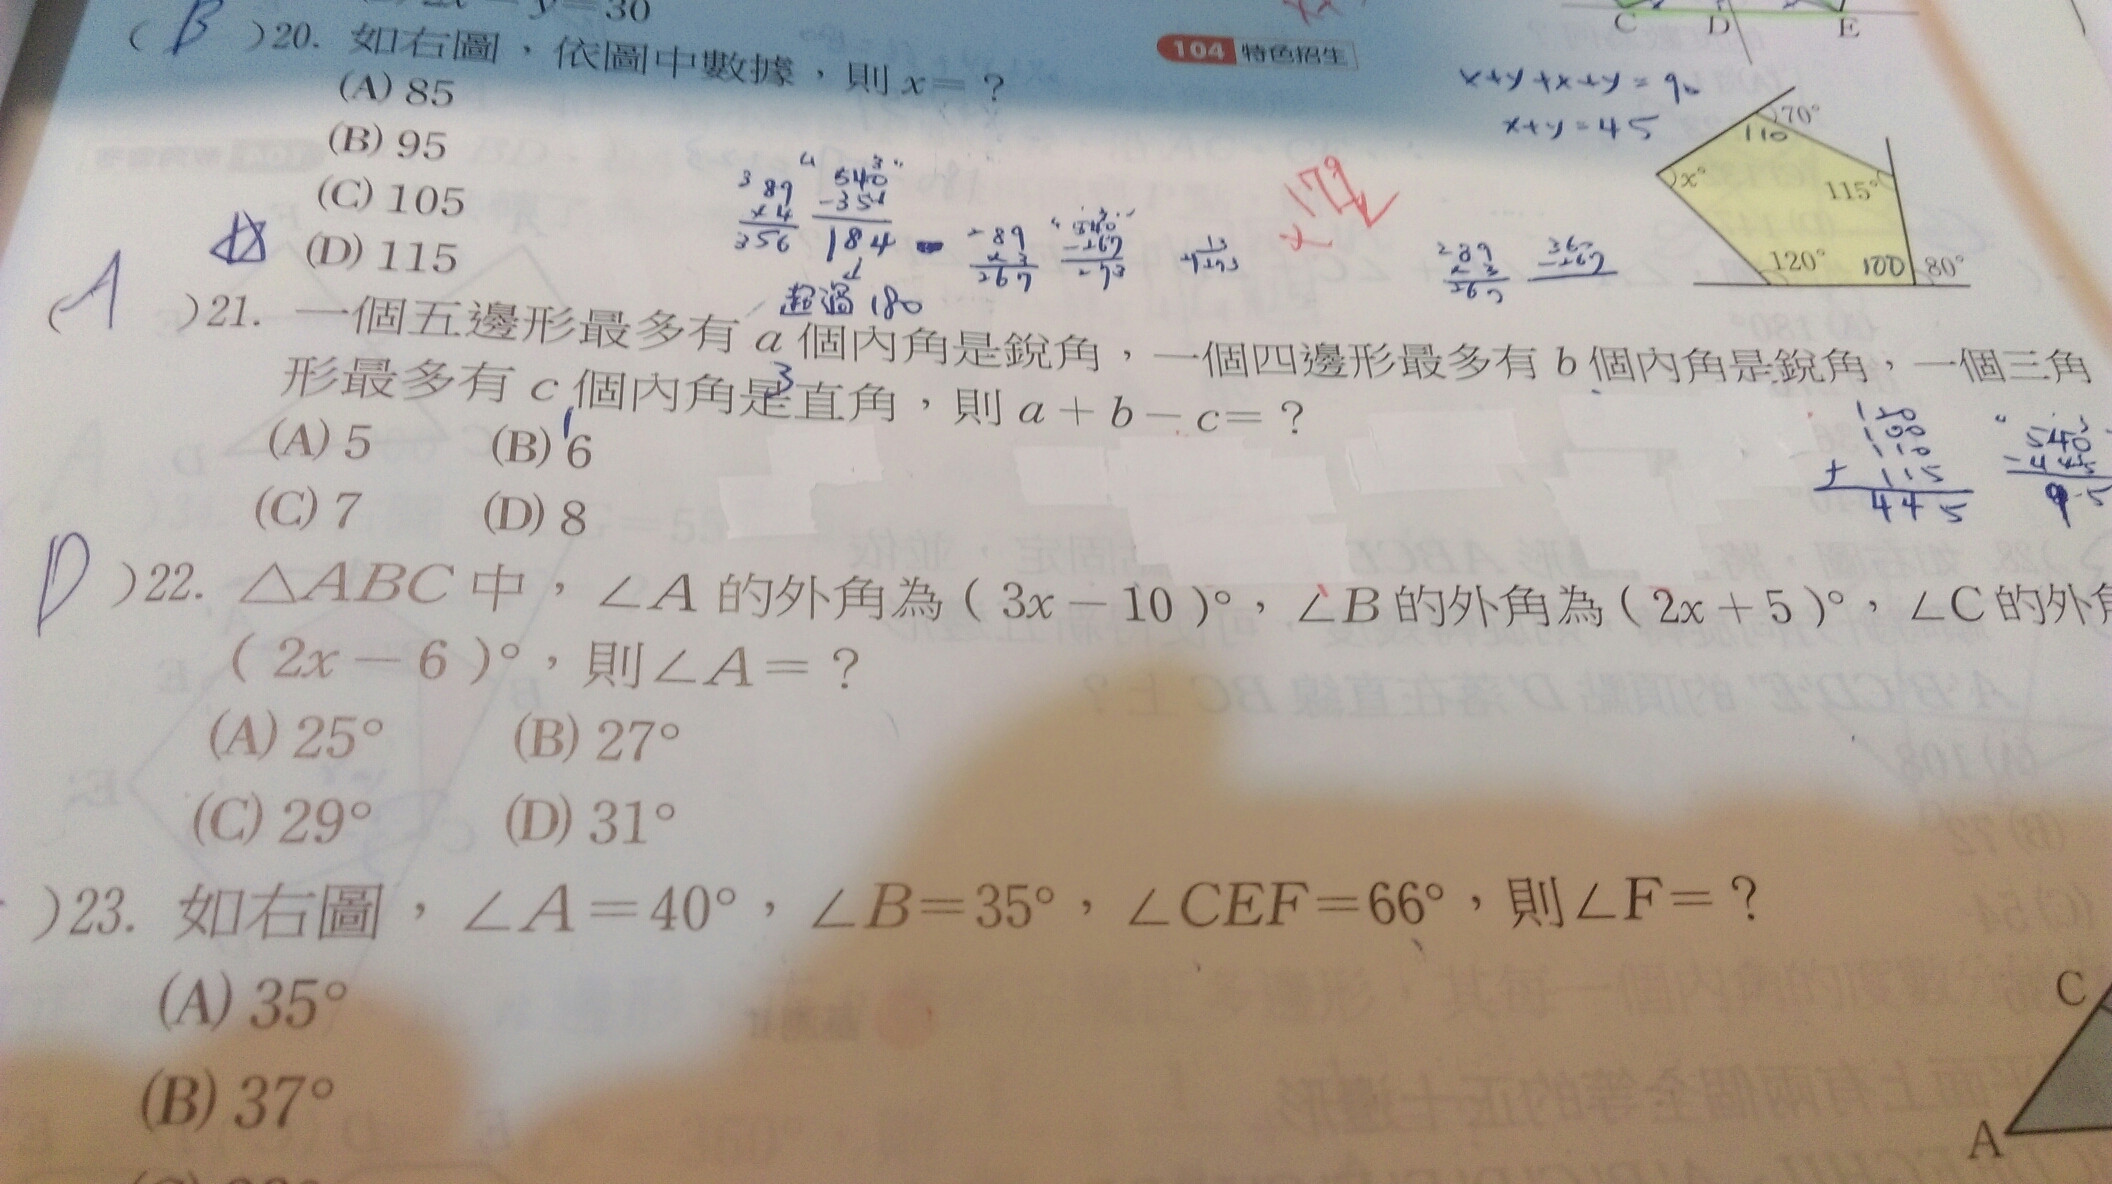 y=30
(B)20. 如右圖，依圖中數據，則x=？
104 特色招生
C D E
(A) 85
(B) 95
(C) 105
(D) 115
x+y+x+y=90
x+y=45
70°
110
x°
115°
120°
100
80°
3 89
x4
356
540
184
超過180
89
x3
267
540
-267
273
179
289
x3
267
360
-267
(A)21. 一個五邊形最多有 a 個內角是銳角，一個四邊形最多有 b 個內角是銳角，一個三角
形最多有 c 個內角是直角，則 a＋b－c=？
3
1
(A) 5 (B) 6
(C) 7 (D) 8
120
100
110
+ 115
445
540
-445
95
D )22. △ABC 中，∠A 的外角為（3x－10）°，∠B 的外角為（2x＋5）°，∠C 的外角
（2x－6）°，則∠A=？
(A) 25° (B) 27°
(C) 29° (D) 31°
)23. 如右圖，∠A=40°，∠B=35°，∠CEF=66°，則∠F=？
(A) 35°
(B) 37°
C
A